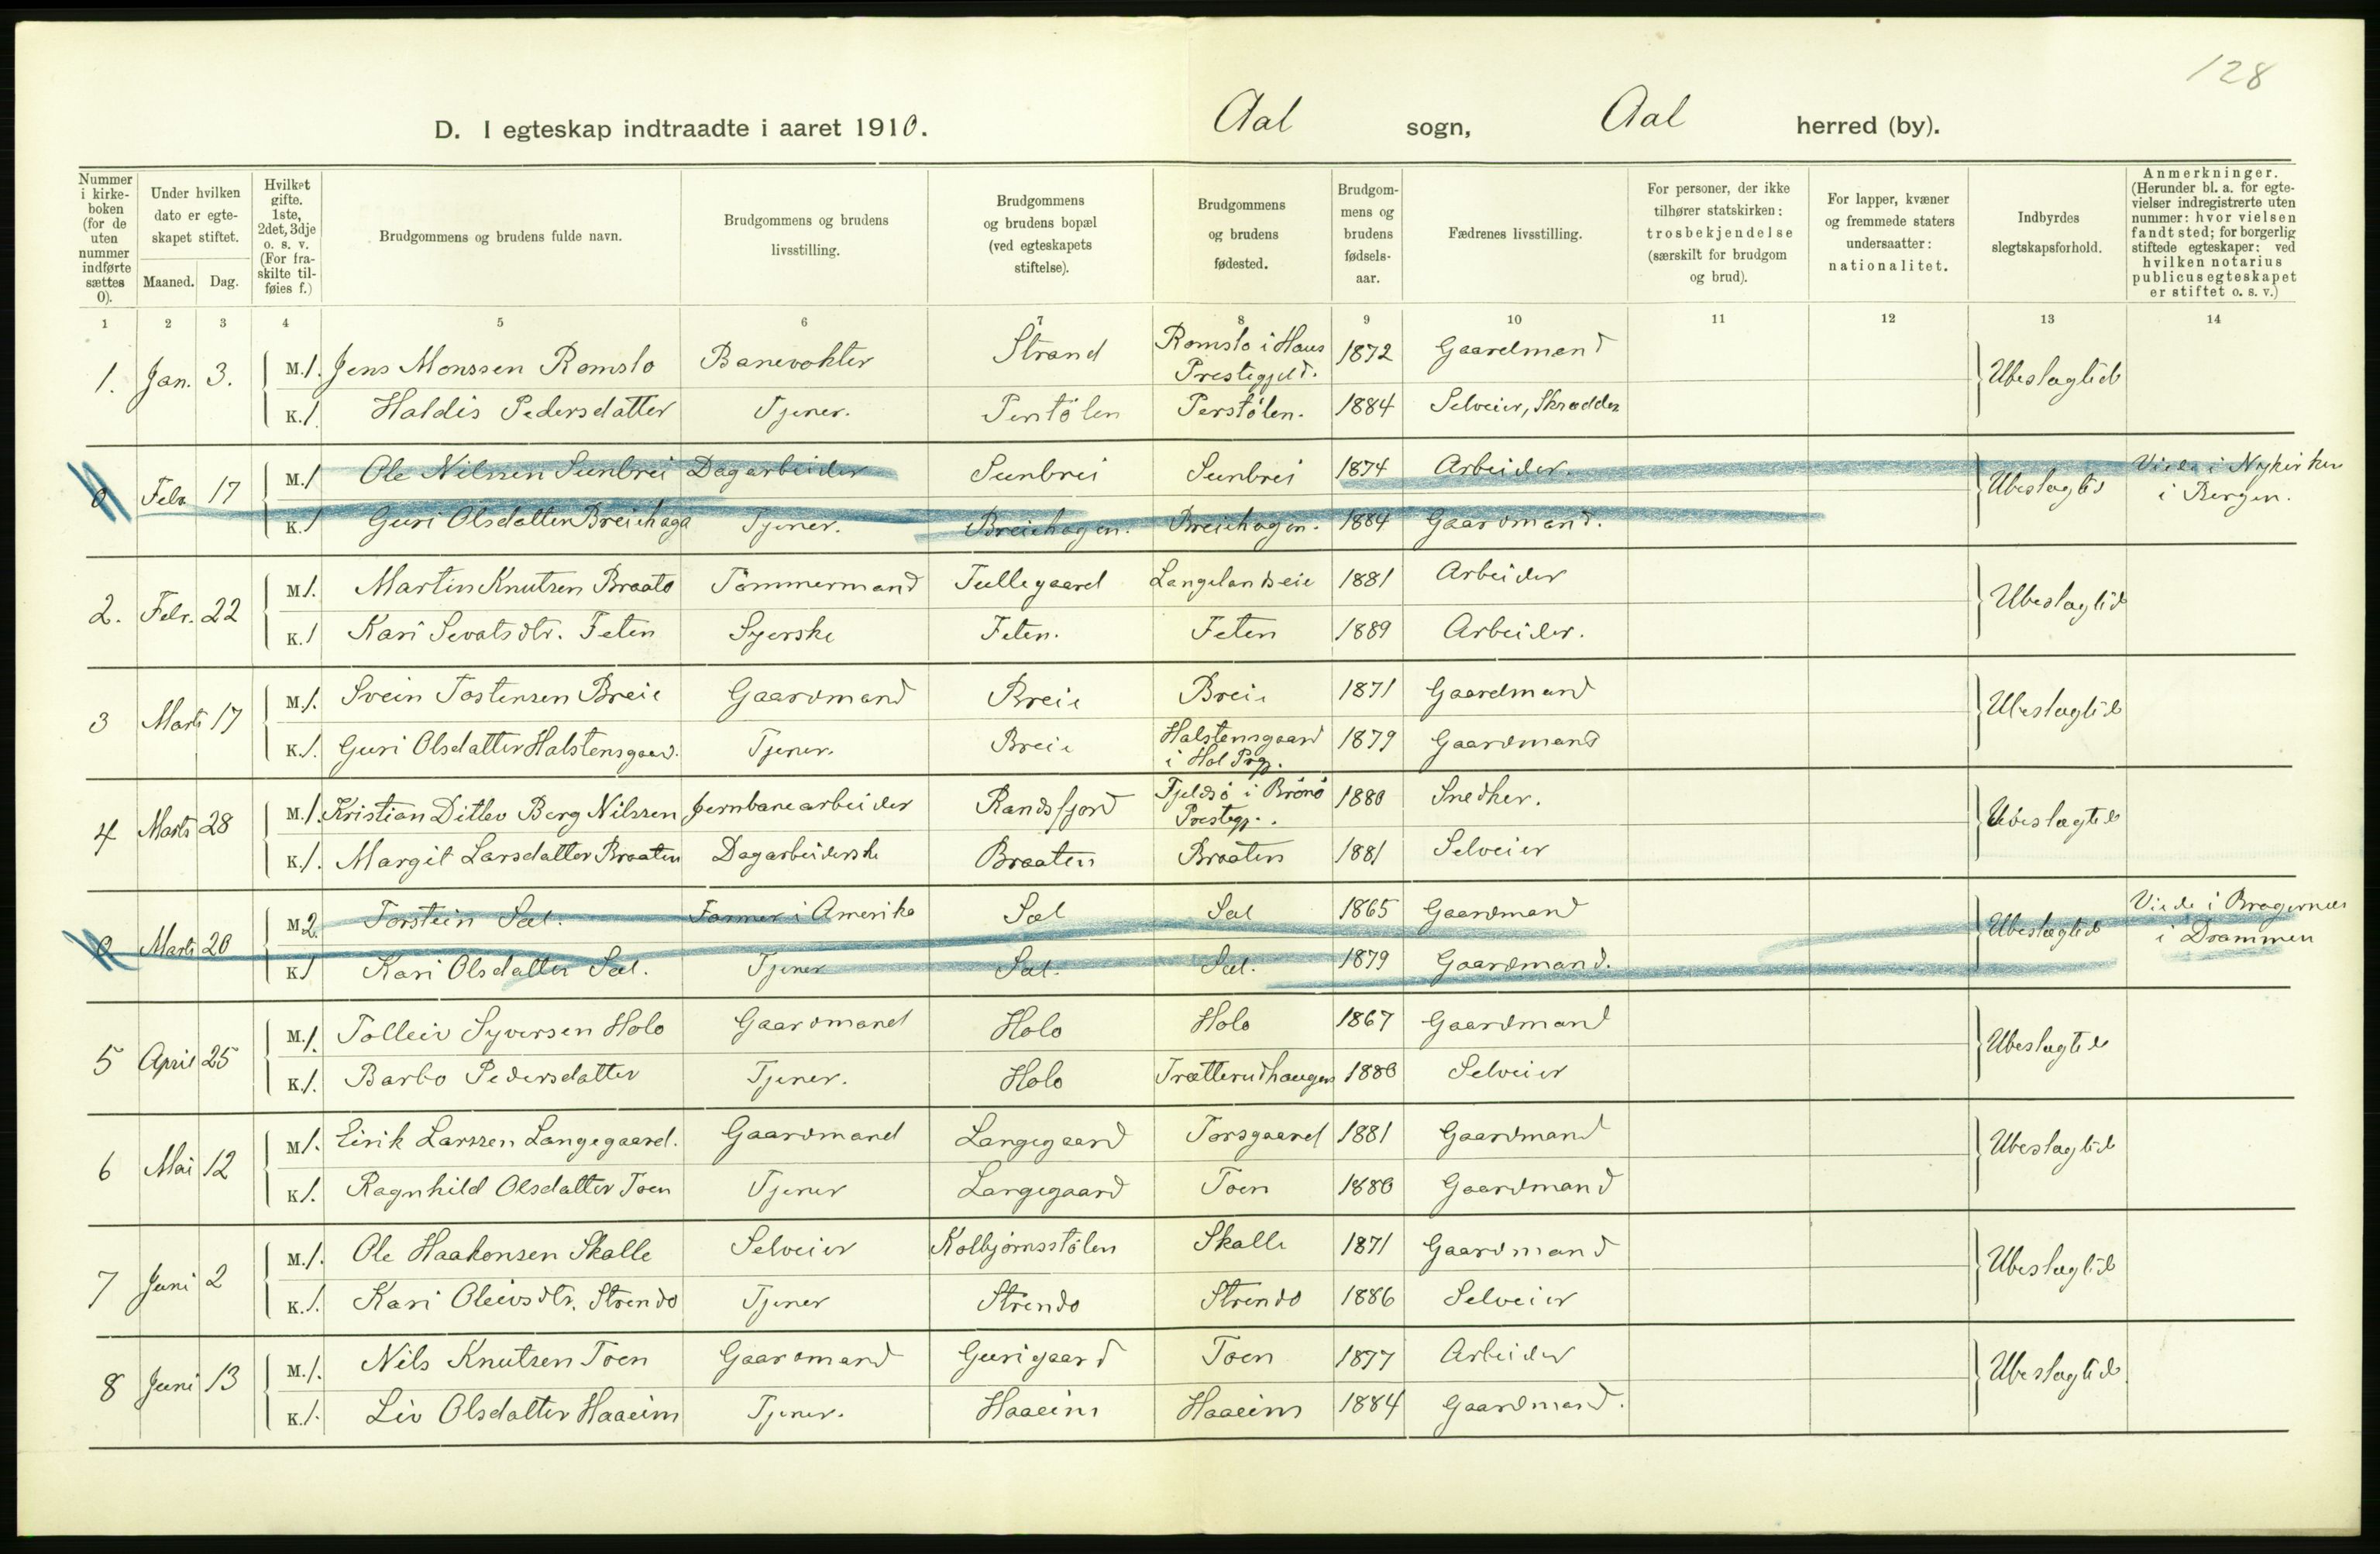 128
D. I egteskap indtraadte i aaret 1910. Aal sogn, Aal herred (by).
Nummer i kirke-boken (for de uten nummer indførte sættes 0).
Under hvilken dato er egte-skapet stiftet.
Maaned. Dag.
Hvilket gifte. 1ste, 2det, 3dje o. s. v. (For fra-skilte til-føies f.)
Brudgommens og brudens fulde navn.
Brudgommens og brudens livsstilling.
Brudgommens og brudens bopæl (ved egteskapets stiftelse).
Brudgommens og brudens fødested.
Brudgom-mens og brudens fødsels-aar.
Fædrenes livsstilling.
For personer, der ikke tilhører statskirken: trosbekjendelse (særskilt for brudgom og brud).
For lapper, kvæner og fremmede staters undersaatter: nationalitet.
Indbyrdes slegtskapsforhold.
Anmerkninger. (Herunder bl. a. for egte-vielser indregistrerte uten nummer: hvor vielsen fandt sted; for borgerlig stiftede egteskaper: ved hvilken notarius publicus egteskapet er stiftet o. s. v.)
1 2 3 4 5 6 7 8 9 10 11 12 13 14
1. Jan. 3. M. 1. Jens Monssen Romslo Banevokter Strand Romslo i Haus Prestegjeld. 1872 Gaardmand Ubeslægtede
K. 1. Haldis Pedersdatter Tjener. Perstölen Perstölen. 1884 Selveier, Skrædder
0 Febr. 17 M. 1 Ole Nilssen Sunbrei Dagarbeider Sunbrei Sunbrei 1874 Arbeider. Ubeslægted Viede i Nykirken i Bergen.
K. 1 Guri Olsdatter Breiehaga Tjener. Breiehagen. Breiehagen. 1884 Gaardmand.
2. Febr. 22 M. 1. Martin Knutsen Braato Tömmermand Tullegaard Langelandseie 1881 Arbeider Ubeslægtede
K. 1 Kari Sevatsdtr. Feten Syerske Feten. Feten 1889 Arbeider.
3 Marts 17 M. 1. Svein Tostensen Breie Gaardmand Breie Breie 1871 Gaardmand Ubeslægtede
K. 1. Guri Olsdatter Halstensgaard. Tjener. Breie Halstensgaard i Hol Prgj. 1879 Gaardmand
4 Marts 28 M. 1. Kristian Ditlev Berg Nilssen Jernbanearbeider Randsfjord Fjeldsö i Brönö Prestegj. 1880 Snedker. Ubeslægtede
K. 1. Margit Larsdatter Braaten Dagarbeiderske Braaten Braaten 1881 Selveier
0 Marts 20 M. 2. Torstein Sæl. Farmer i Amerika Sæl Sæl 1865 Gaardmand Ubeslægtede Viede i Bragernæs i Drammen
K. 1 Kari Olsdatter Sæl. Tjener Sæl. Sæl. 1879 Gaardmand.
5 April 25 M. 1. Tolleiv Syversen Holo Gaardmand Holo Holo 1867 Gaardmand Ubeslægtede
K. 1. Barbo Pedersdatter Tjener. Holo Trætterudhaugen 1880 Selveier
6 Mai 12 M. 1. Eirik Larssen Langegaard. Gaardmand Langegaard Torsgaard 1881 Gaardmand Ubeslægtede
K. 1. Ragnhild Olsdatter Toen Tjener Langegaard Toen 1880 Gaardmand
7 Juni 2 M. 1. Ole Haakonsen Skalle Selveier Kolbjørnsstölen Skalle 1871 Gaardmand Ubeslægtede
K. 1. Kari Oleivsdtr. Strendo Tjener Strendo Strendo 1886 Selveier
8 Juni 13 M. 1. Nils Knutsen Toen Gaardmand Gurigaard Toen 1877 Arbeider Ubeslægtede
K. 1. Liv Olsdatter Haaeim Tjener. Haaeim Haaeim 1884 Gaardmand.